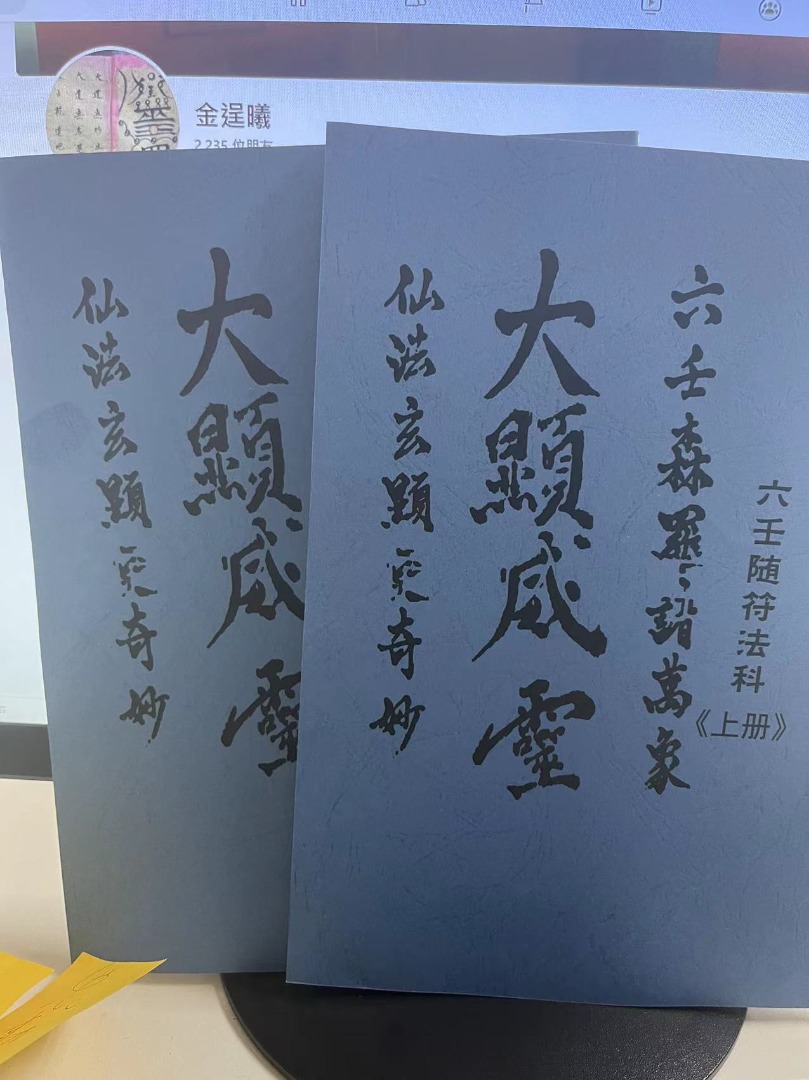 金逞曦
2,235 位朋友
六壬随符法科
《上册》
六壬森羅諧萬象
大顯威靈
仙法玄顯更奇妙
大顯威靈
仙法玄顯更奇妙